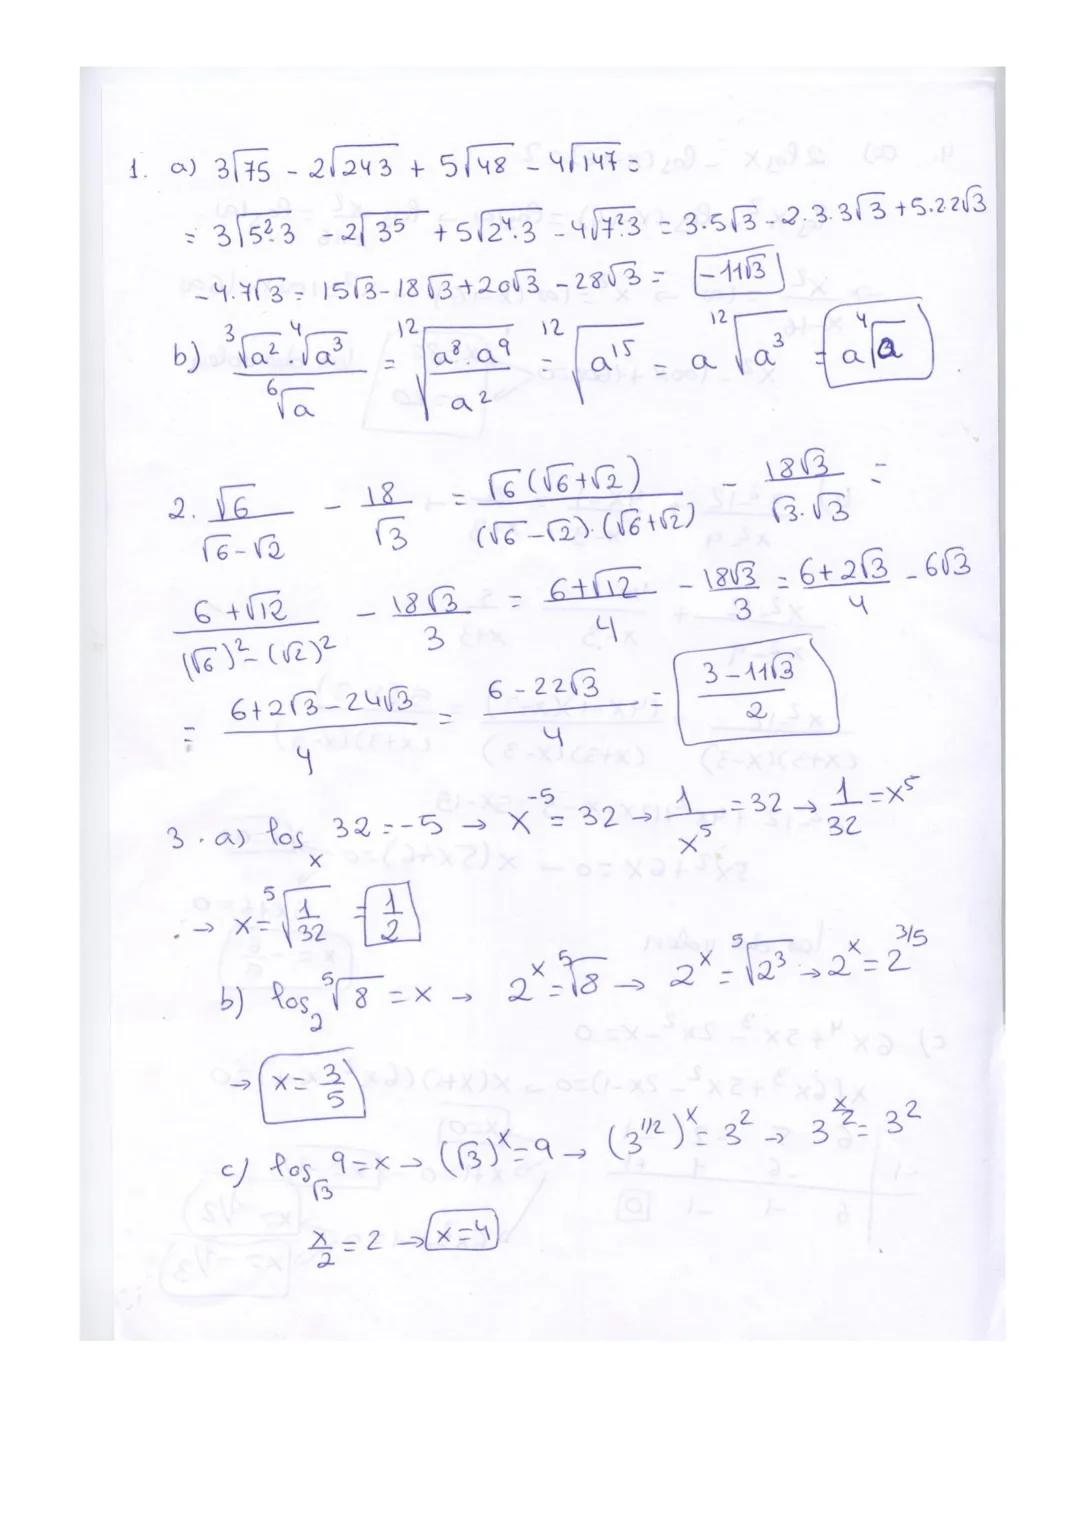 1. a) 3√75 - 2√243 + 5√48 - 4√147 =
= 3√5².3 - 2√3⁵ + 5√2⁴.3 - 4√7².3 = 3.5√3 - 2.3.3√3 + 5.2.2√3
- 4.7√3 = 15√3 - 18√3 + 20√3 - 28√3 = -11√3
b) ³√a² . ⁴√a³ / ⁶√a = ¹²√(a⁸.a⁹ / a²) = ¹²√a¹⁵ = a ¹²√a³ = a ⁴√a
2. √6 / (√6-√2) - 18/√3 = √6(√6+√2) / (√6-√2).(√6+√2) - 18√3 / √3.√3 =
(6+√12) / ((√6)²-(√2)²) - 18√3/3 = (6+√12)/4 - 18√3/3 = (6+2√3)/4 - 6√3
= (6+2√3-24√3)/4 = (6-22√3)/4 = (3-11√3)/2
3. a) logₓ 32 = -5 → x⁻⁵ = 32 → 1/x⁵ = 32 → 1/32 = x⁵
→ x = ⁵√(1/32) = 1/2
b) log₂ ⁵√8 = x → 2ˣ = ⁵√8 → 2ˣ = ⁵√2³ → 2ˣ = 2^3/5
→ x = 3/5
c) log_√3 9 = x → (√3)ˣ = 9 → (3^1/2)ˣ = 3² → 3^x/2 = 3²
x/2 = 2 → x = 4